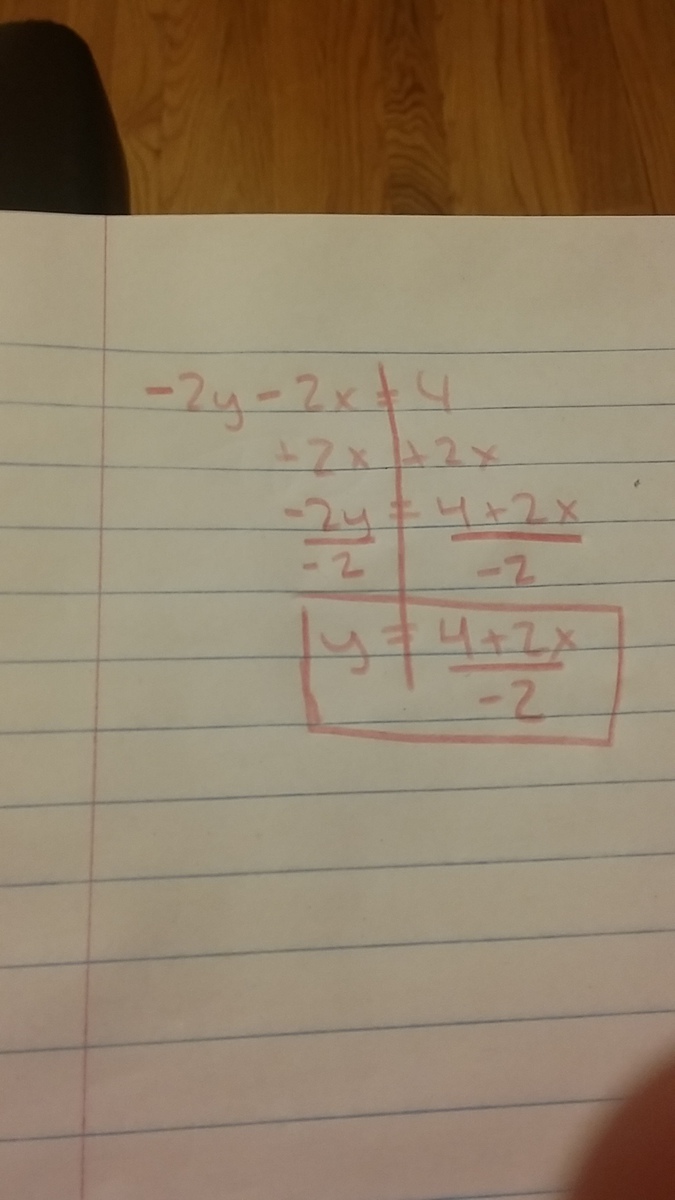 -2y - 2x = 4
+2x +2x
-2y = 4+2x
-2 -2
y = 4+2x
-2